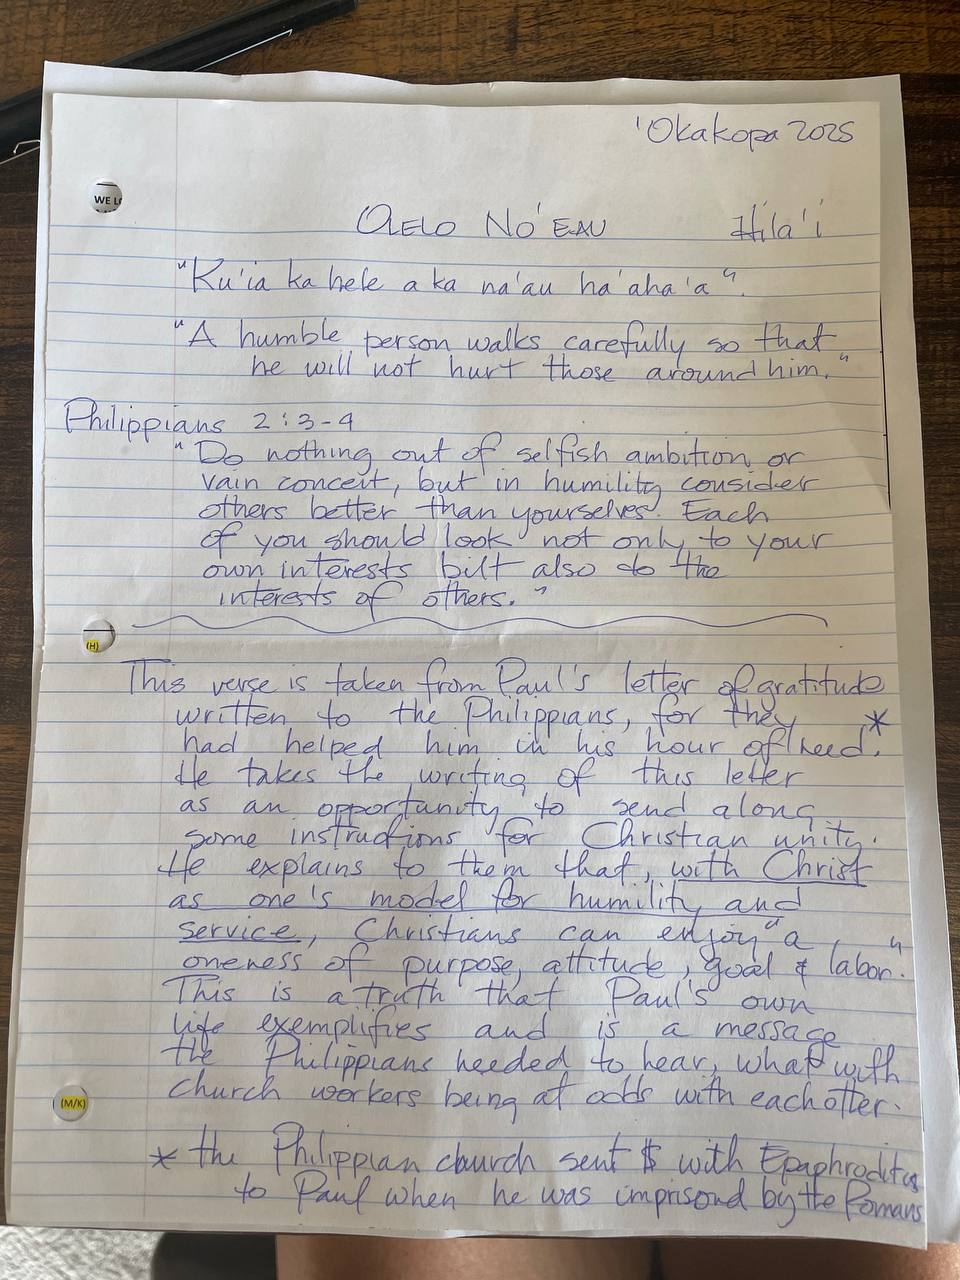 'Okakopa 2025
OLELO NO'EAU Hila'i
"Ku'ia ka hele a ka na'au ha'aha'a".
"A humble person walks carefully so that
he will not hurt those around him."
Philippians 2:3-4
"Do nothing out of selfish ambition or
vain conceit, but in humility consider
others better than yourselves. Each
of you should look not only to your
own interests but also do the
interests of others."
This verse is taken from Paul's letter of gratitude
written to the Philippians, for they
had helped him in his hour of need.*
He takes the writing of this letter
as an opportunity to send along
some instructions for Christian unity.
He explains to them that, with Christ
as one's model for humility and
service, Christians can enjoy "a
oneness of purpose, attitude, goal & labor."
This is a truth that Paul's own
life exemplifies and is a message
the Philippians needed to hear, what with
church workers being at odds with each otter.
* the Philippian church sent $ with Epaphroditus
to Paul when he was imprisond by the Romans
WE
(H)
(M/K)